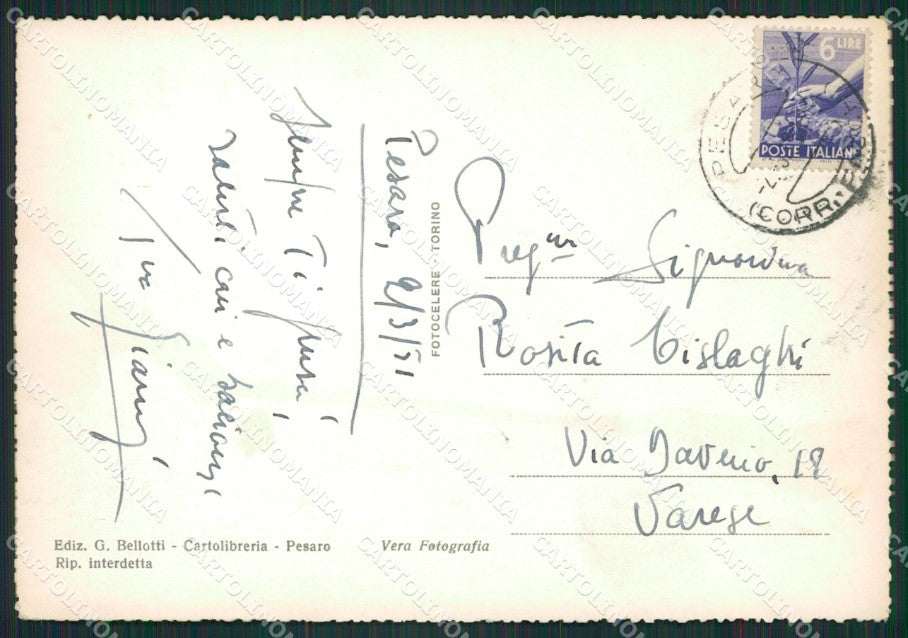 6 LIRE
POSTE ITALIANE
PESARO
(CORR.
Pesaro, 2/3/51
Sempre Ti penso,
saluti cari e bacioni
tuo Gianni
FOTOCELERE - TORINO
Preg.ma Signorina
Rosita Cislaghi
Via Daverio, 18
Varese
Ediz. G. Bellotti - Cartolibreria - Pesaro
Rip. interdetta
Vera Fotografia
CARTOLINOMANIA